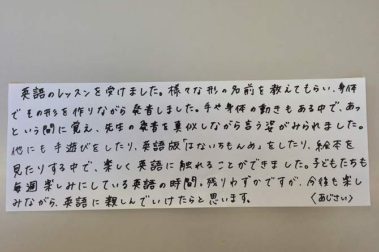 英語のレッスンを受けました。様々な形の名前を教えてもらい、身体
でその形を作りながら発音しました。手や身体の動きもある中で、あっ
という間に覚え、先生の発音を真似しながら言う姿がみられました。
他にも手遊びをしたり、英語版「はないちもんめ」をしたり、絵本を
見たりする中で、楽しく英語に触れることができました。子どもたちも
毎週楽しみにしている英語の時間。残りわずかですが、今後も楽し
みながら、英語に親しんでいけたらと思います。 〈あじさい〉